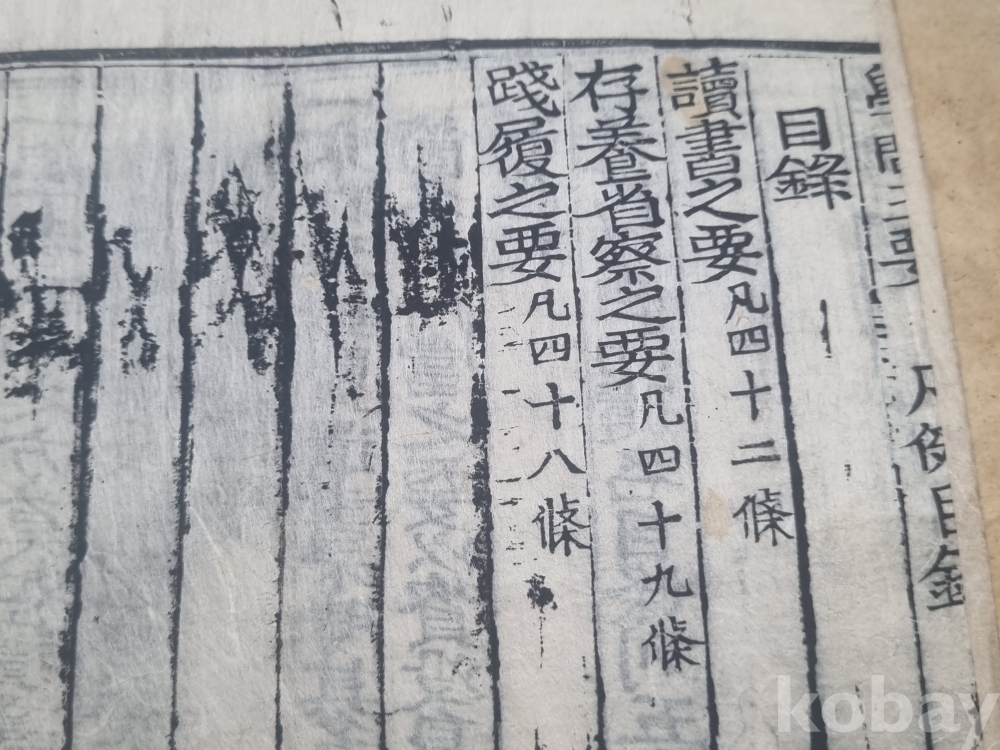 學問三要 凡例目錄
目錄
讀書之要凡四十二條
存養省察之要凡四十九條
踐履之要凡四十八條
kobay